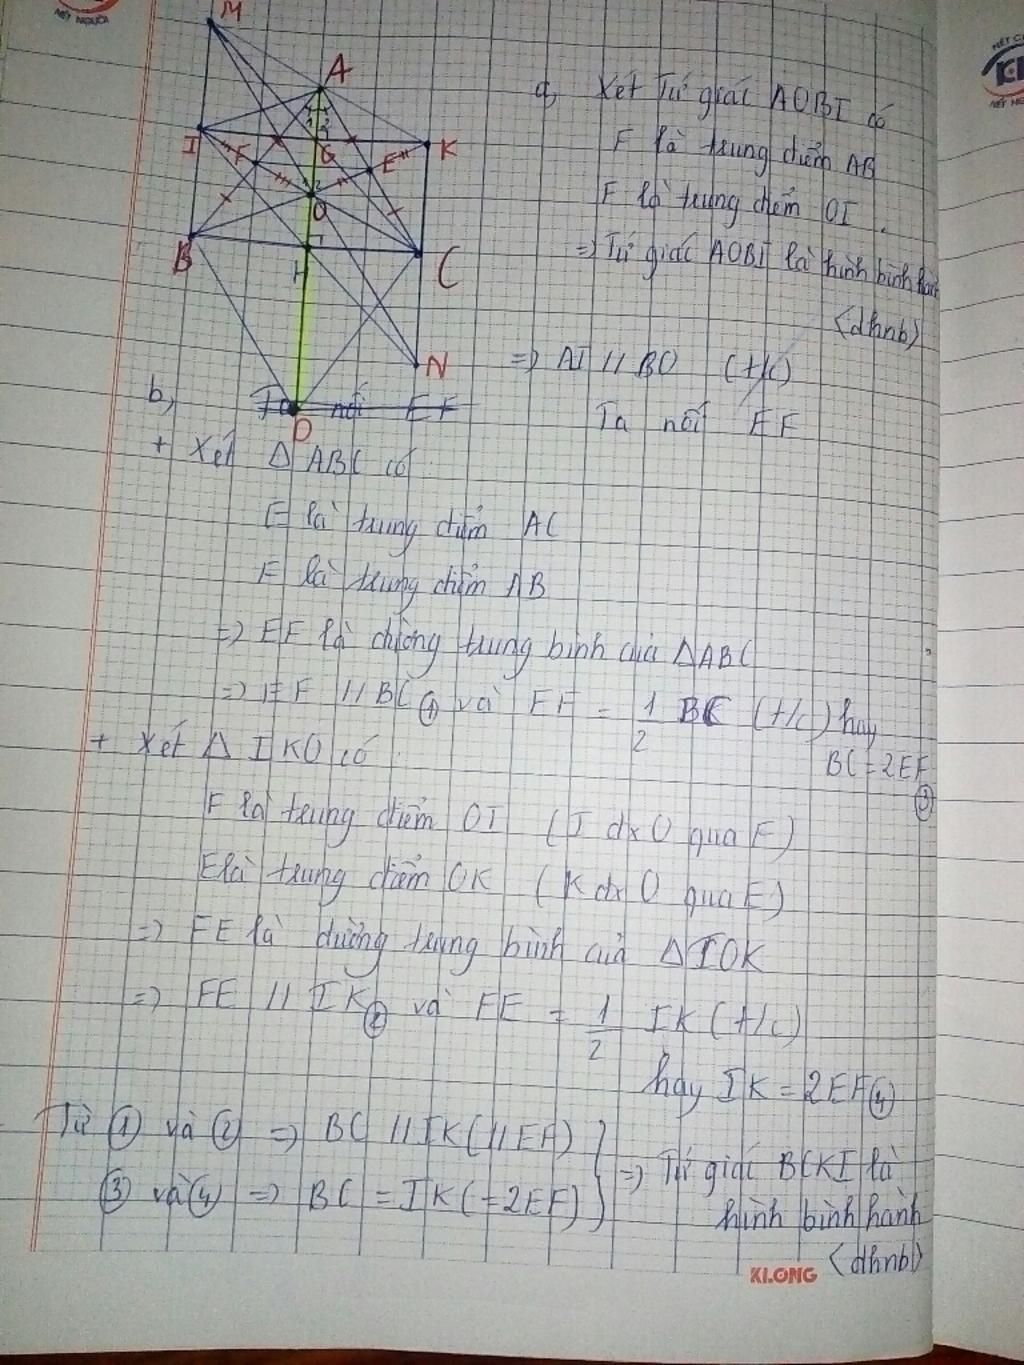 M
A
I
F
G
E
K
O
B
H
C
N
D
a, Xét Tứ giác AOBI có
F là trung điểm AB
F là trung điểm OI.
=> Tứ giác AOBI là hình bình hành
(dhnb)
=> AI // BO (t/c)
Ta nối EF
b, Ta nối EF
+ Xét Δ ABC có
E là trung điểm AC
F là trung điểm AB
=> EF là đường trung bình của ΔABC
=> EF // BC ① và EF = 1/2 BC (t/c) hay
BC = 2EF ③
+ Xét Δ IKO có
F là trung điểm OI (I đx O qua F)
E là trung điểm OK (K đx O qua E)
=> FE là đường trung bình của ΔIOK
=> FE // IK ② và FE = 1/2 IK (t/c)
hay IK = 2EF ④
Từ ① và ② => BC // IK (// EF)
③ và ④ => BC = IK (= 2EF)
=> Tứ giác BCKI là
hình bình hành
(dhnb)
KLONG
NÉT NGƯỜI